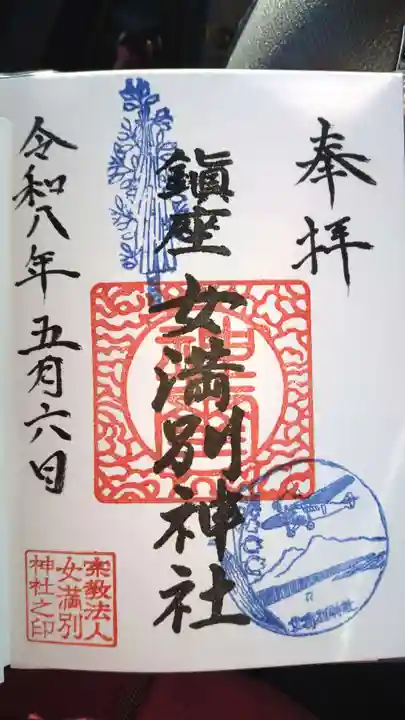 奉拝
鎭座 女満別神社
令和八年五月六日
宗教法人
女満別
神社之印